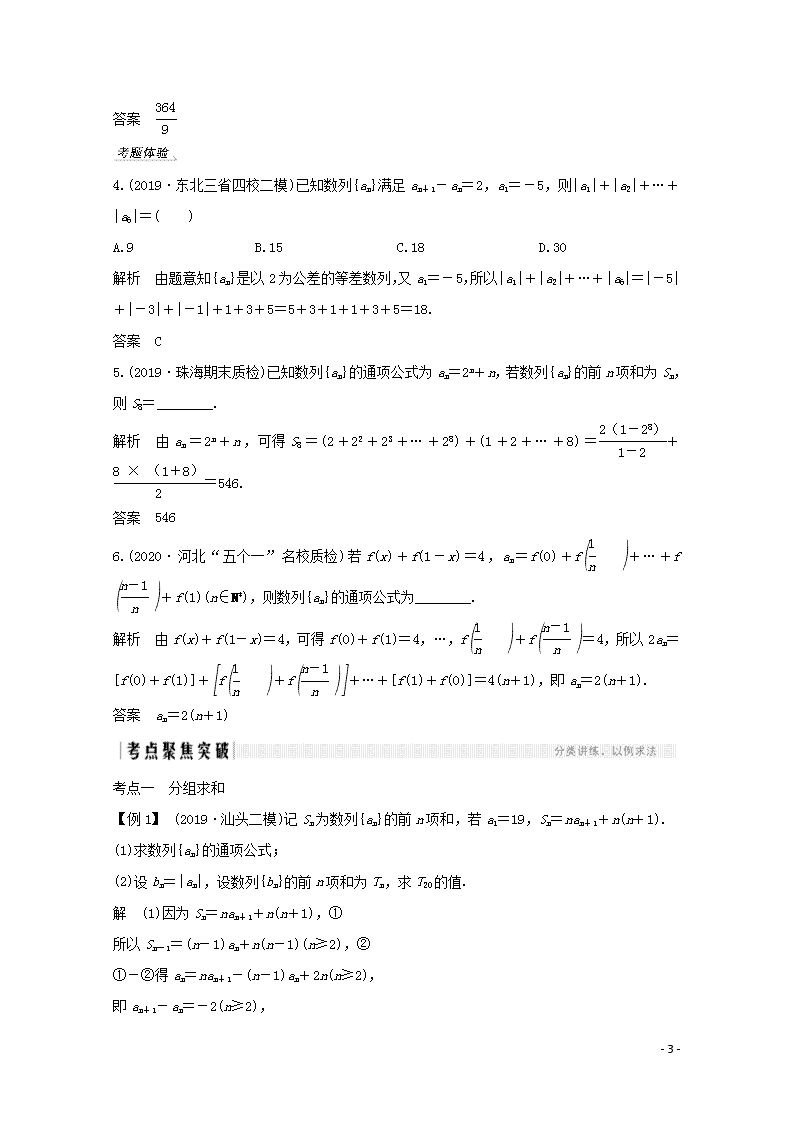 答案　364/9
考题体验
4.(2019·东北三省四校二模)已知数列{aₙ}满足 aₙ₊₁－aₙ＝2, a₁＝－5, 则|a₁|＋|a₂|＋…＋
|a₆|＝(　　)
A.9　　B.15　　C.18　　D.30
解析　由题意知{aₙ}是以 2 为公差的等差数列,又 a₁＝－5,所以|a₁|＋|a₂|＋…＋|a₆|＝|－5|
＋|－3|＋|－1|＋1＋3＋5＝5＋3＋1＋1＋3＋5＝18.
答案　C
5.(2019·珠海期末质检)已知数列{aₙ}的通项公式为 aₙ＝2ⁿ＋n, 若数列{aₙ}的前 n 项和为 Sₙ,
则 S₈＝________.
解析　由 aₙ＝2ⁿ＋n, 可得 S₈＝(2＋2²＋2³＋…＋2⁸)＋(1＋2＋…＋8)＝2（1－2⁸）/1－2＋
8 × （1＋8）/2＝546.
答案　546
6.(2020·河北“五个一”名校质检)若 f(x)＋f(1－x)＝4, aₙ＝f(0)＋f(1/n)＋…＋f
(n－1/n)＋f(1)(n∈N*), 则数列{aₙ}的通项公式为________.
解析　由 f(x)＋f(1－x)＝4, 可得 f(0)＋f(1)＝4, …, f(1/n)＋f(n－1/n)＝4, 所以 2aₙ＝
[f(0)＋f(1)]＋[f(1/n)＋f(n－1/n)]＋…＋[f(1)＋f(0)]＝4(n＋1), 即 aₙ＝2(n＋1).
答案　aₙ＝2(n＋1)
考点聚焦突破　分类讲练，以例求法
考点一　分组求和
【例 1】 (2019·汕头二模)记 Sₙ为数列{aₙ}的前 n 项和, 若 a₁＝19, Sₙ＝naₙ₊₁＋n(n＋1).
(1)求数列{aₙ}的通项公式;
(2)设 bₙ＝|aₙ|, 设数列{bₙ}的前 n 项和为 Tₙ, 求 T₂₀的值.
解　(1)因为 Sₙ＝naₙ₊₁＋n(n＋1), ①
所以 Sₙ₋₁＝(n－1)aₙ＋n(n－1)(n≥2), ②
①－②得 aₙ＝naₙ₊₁－(n－1)aₙ＋2n(n≥2),
即 aₙ₊₁－aₙ＝－2(n≥2),
- 3 -